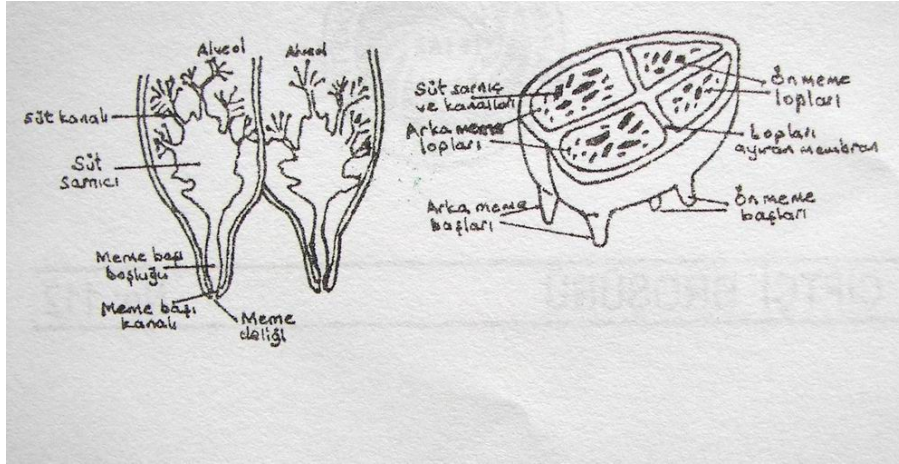 Alveol
Alveol
Süt kanalı
Süt
sarnıcı
Meme başı
boşluğu
Meme başı
kanalı
Meme
deliği
Süt sarnıç
ve kanalları
Arka meme
lopları
Arka meme
başları
Ön meme
lopları
Lopları
ayıran membran
Ön meme
başları